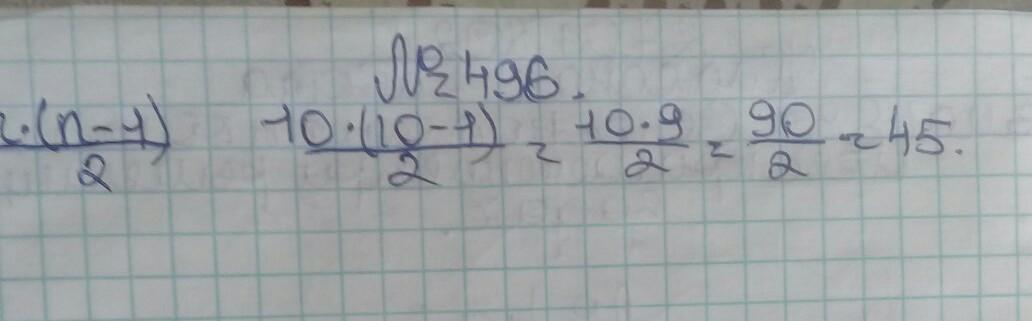 № 496.
·(n-1)/2 10·(10-1)/2 = 10·9/2 = 90/2 = 45.